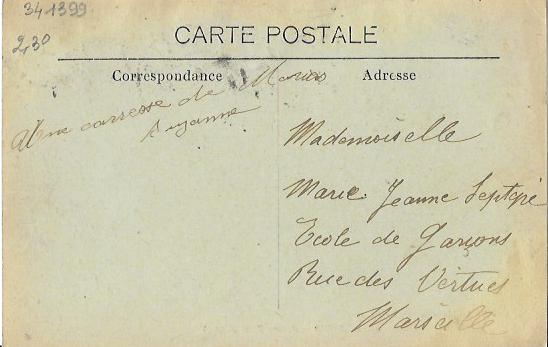 341399
2,30
CARTE POSTALE
Correspondance
Adresse
Une caresse de Marius
Suzanne
Mademoiselle
Marie Jeanne
Ecole de Garçons
Rue des Vertues
Marseille